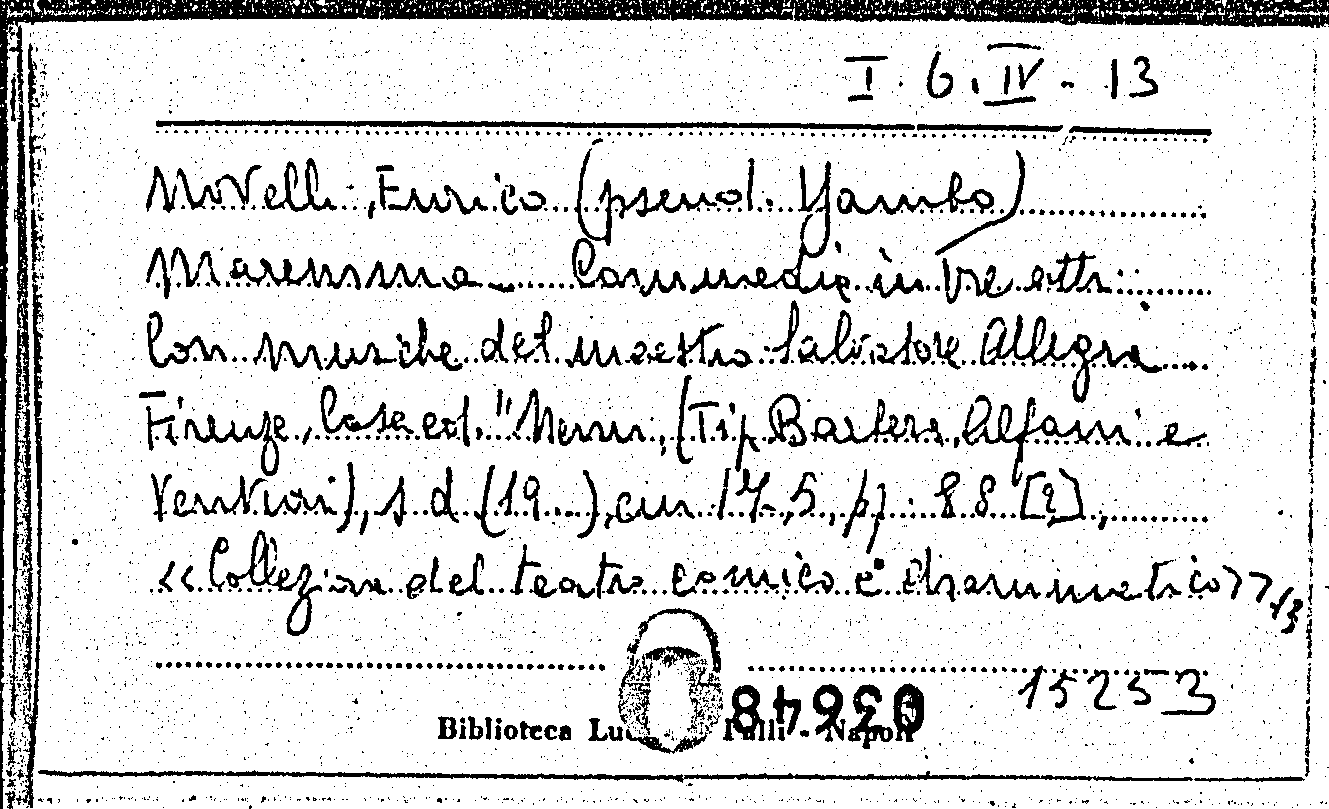 I. 6. IV - 13
Novelli, Enrico (pseud. Yambo)
Maremma - Commedia in tre atti.
Con musiche del maestro Salvatore Allegra
Firenze, Casa ed. "Nemi, (Tip. Barbera, Alfani e
Venturi), s d (19...), cm 17,5, pp. 88 [2],
<<Collezione del teatro comico e drammatico>>, 13
15253
Biblioteca Lucchesi Palli - Napoli